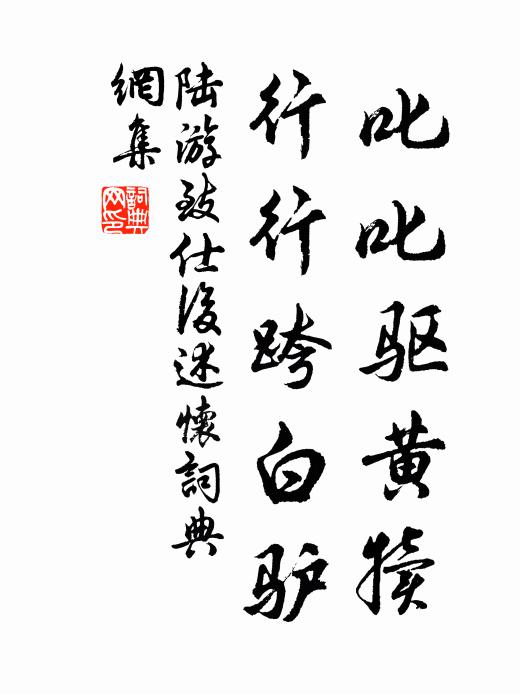 叱叱驱黄犊
行行跨白驴
陆游致仕後述懷詞典
網集
詞典
网印